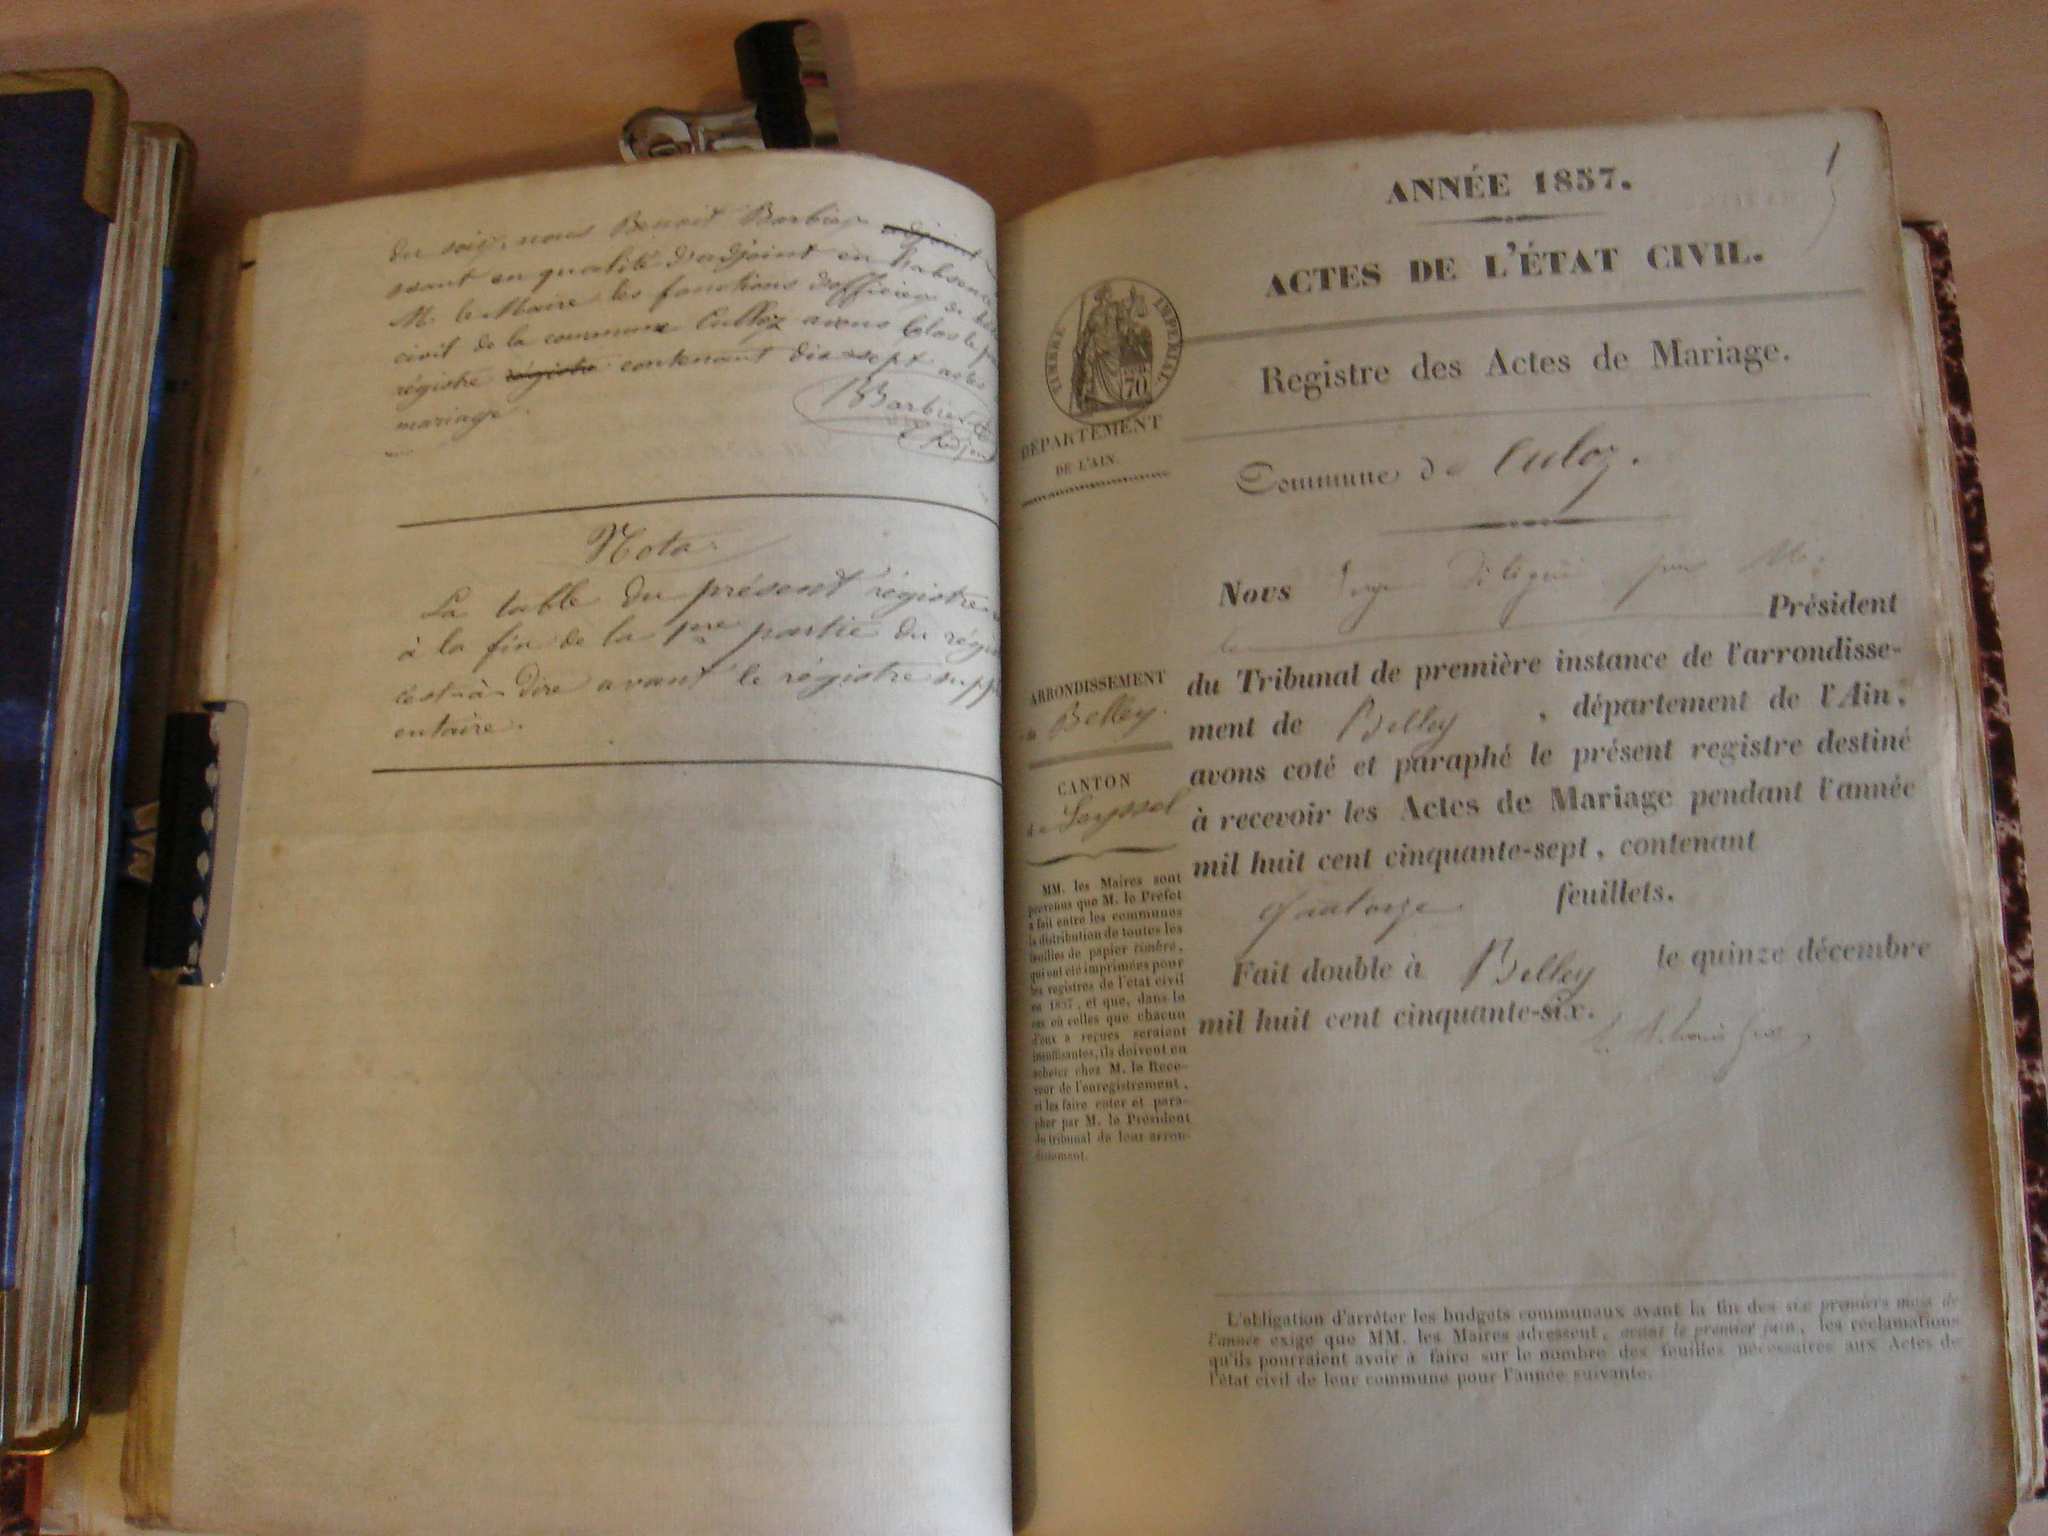 du soir, nous Benoit Barbier
en qualité d'adjoint en l'absence
M. le Maire les fonctions d'officier de
civil de la commune Culloz avons Clos le
régistre régistre contenant dix sept actes
mariage.
BBarbier
Nota
La table du présent régistre
à la fin de la 1re partie du
c'est-à-dire avant le régistre supp
entaire.
1
ANNÉE 1857.
ACTES DE L'ÉTAT CIVIL.
TIMBRE IMPERIAL
70
Registre des Actes de Mariage.
DÉPARTEMENT
DE L'AIN.
Commune de Culoz.
Nous Juge
Président
du Tribunal de première instance de l'arrondisse-
ment de Belley, département de l'Ain,
avons coté et paraphé le présent registre destiné
à recevoir les Actes de Mariage pendant l'année
mil huit cent cinquante-sept, contenant
quatorze feuillets.
Fait double à Belley le quinze décembre
mil huit cent cinquante-six.
ARRONDISSEMENT
de Belley.
CANTON
de Seyssel
MM. les Maires sont
prévenus que M. le Préfet
a fait entre les communes
la distribution de toutes les
feuilles de papier timbré,
qui ont été imprimées pour
les registres de l'état civil
en 1857, et que, dans le
cas où celles que chacun
d'eux a reçues seraient
insuffisantes, ils doivent en
acheter chez M. le Rece-
veur de l'enregistrement,
et les faire coter et para-
pher par M. le Président
du tribunal de leur arron-
dissement.
L'obligation d'arrêter les budgets communaux avant la fin des six premiers mois de
l'année exige que MM. les Maires adressent, avant le premier juin, les réclamations
qu'ils pourraient avoir à faire sur le nombre des feuilles nécessaires aux Actes de
l'état civil de leur commune pour l'année suivante.